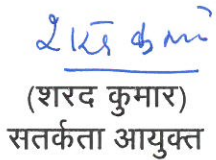 शरद कुमार
(शरद कुमार)
सतर्कता आयुक्त